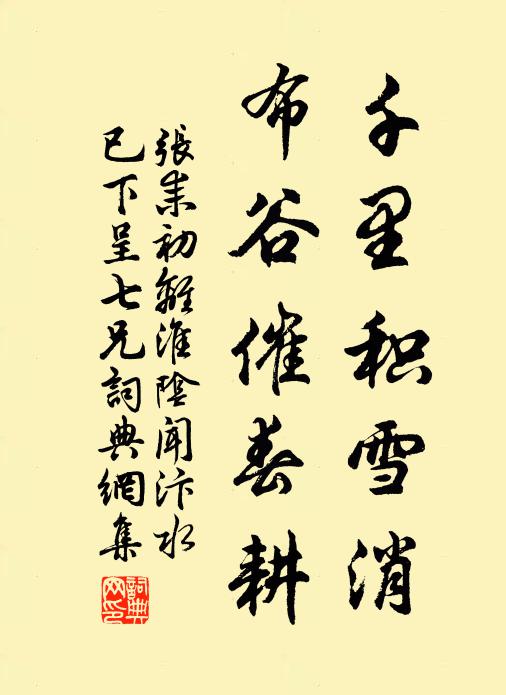 千里积雪消
布谷催春耕
張耒初離淮陰聞汴水
已下呈七兄詞典網集
詞典网印